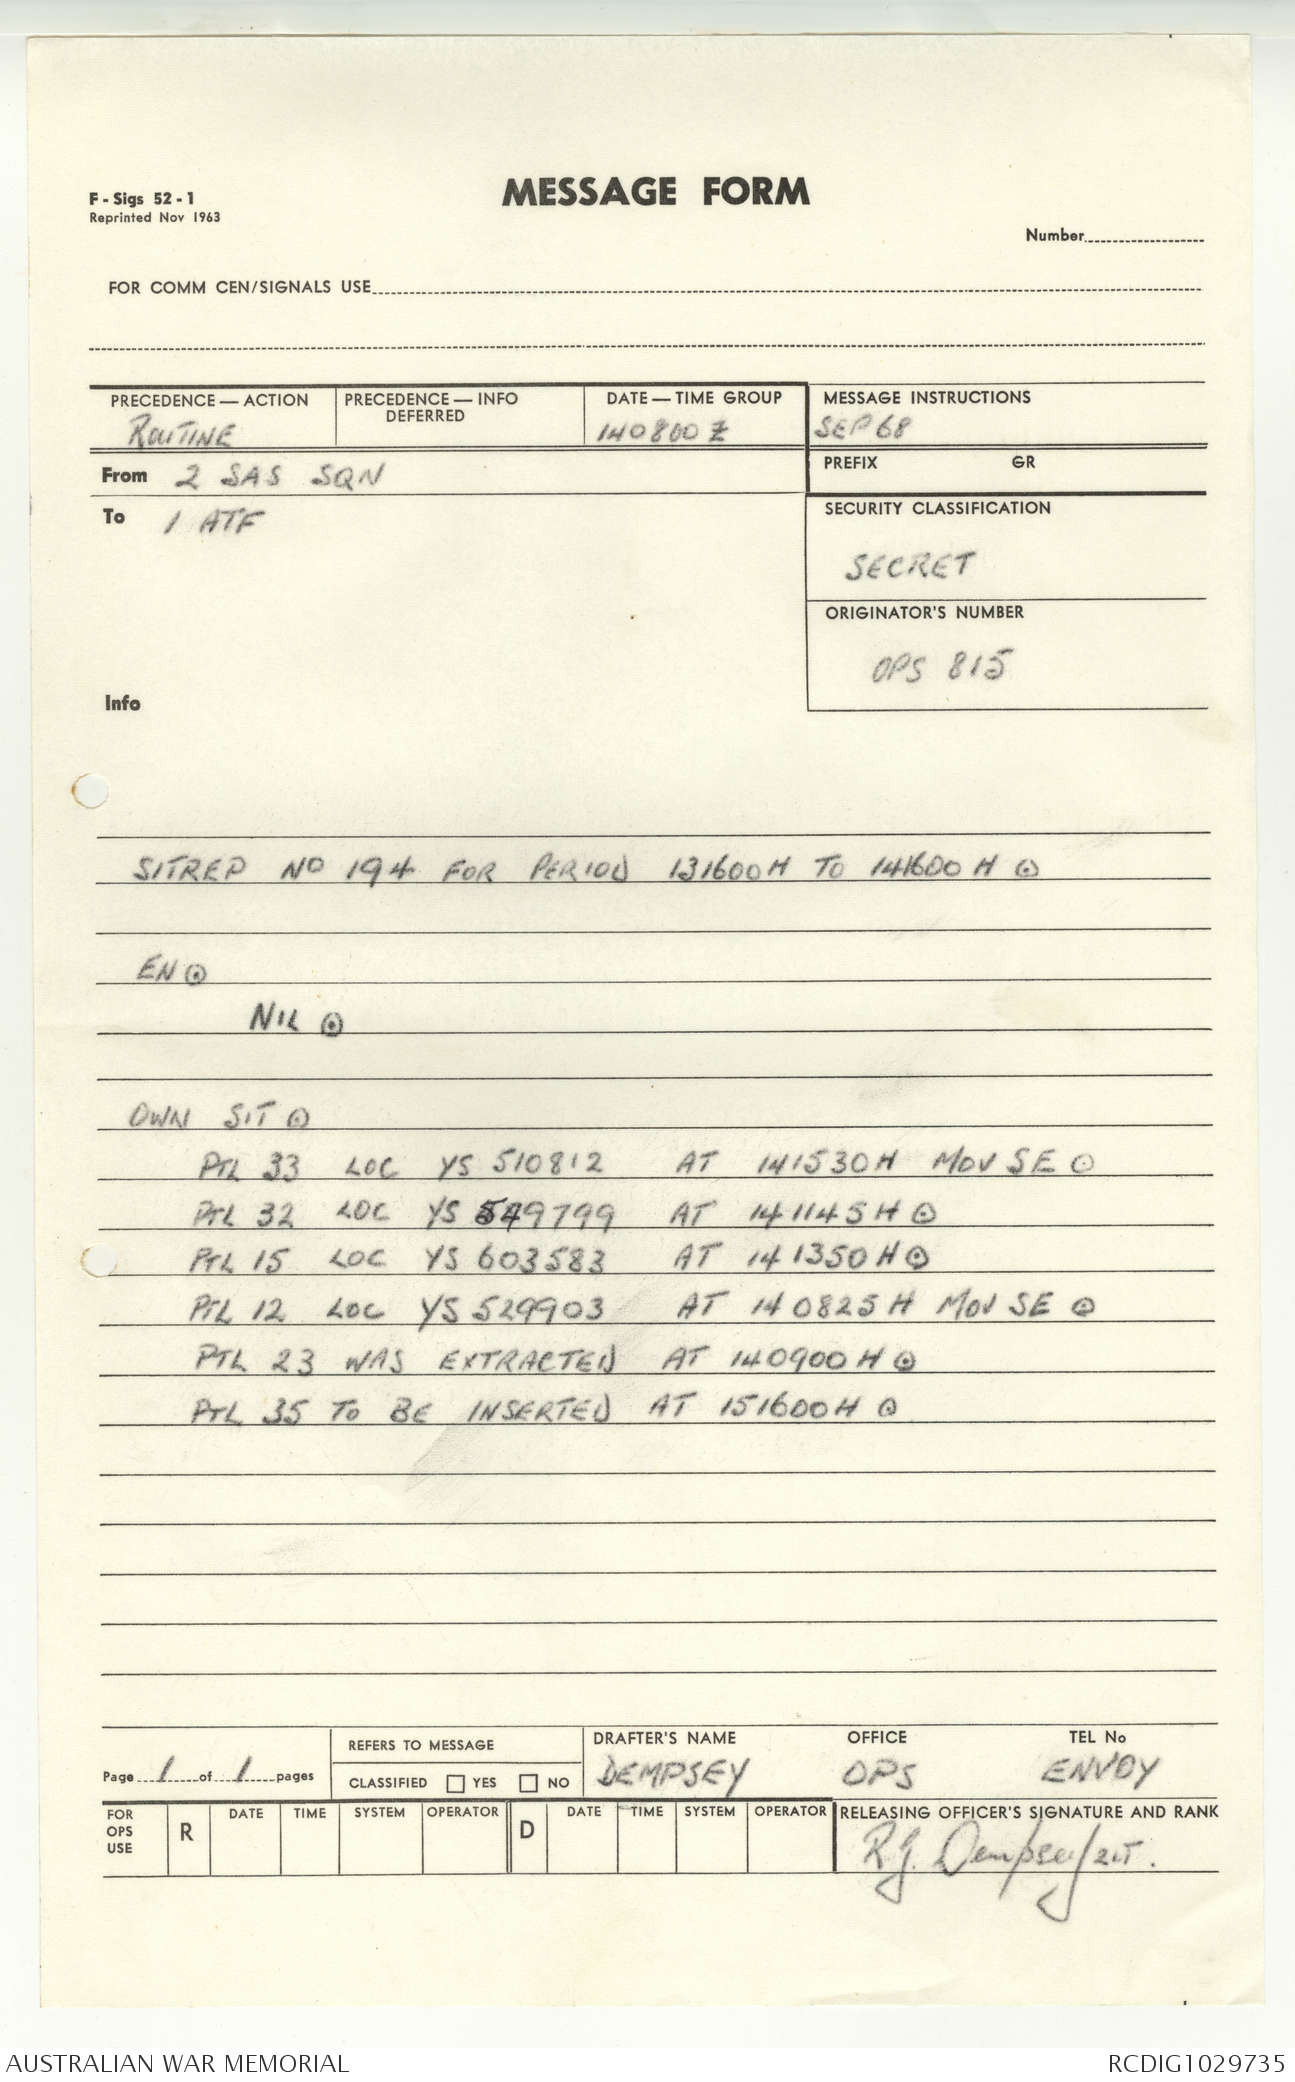 F - Sigs 52 - 1
Reprinted Nov 1963
MESSAGE FORM
Number
FOR COMM CEN/SIGNALS USE
PRECEDENCE — ACTION
ROUTINE
PRECEDENCE — INFO
DEFERRED
DATE — TIME GROUP
140800 Z
MESSAGE INSTRUCTIONS
SEP 68
From 2 SAS SQN
PREFIX GR
To 1 ATF
SECURITY CLASSIFICATION
SECRET
ORIGINATOR'S NUMBER
OPS 815
Info
SITREP NO 194 FOR PERIOD 131600H TO 141600H ⊙
EN ⊙
NIL ⊙
OWN SIT ⊙
PTL 33 LOC YS 510812 AT 141530H MOV SE ⊙
PTL 32 LOC YS 549799 AT 141145H ⊙
PTL 15 LOC YS 603583 AT 141350H ⊙
PTL 12 LOC YS 529903 AT 140825H MOV SE ⊙
PTL 23 WAS EXTRACTED AT 140900H ⊙
PTL 35 TO BE INSERTED AT 151600H ⊙
Page 1 of 1 pages
REFERS TO MESSAGE
CLASSIFIED YES NO
DRAFTER'S NAME OFFICE TEL No
DEMPSEY OPS ENVOY
FOR OPS USE R DATE TIME SYSTEM OPERATOR D DATE TIME SYSTEM OPERATOR
RELEASING OFFICER'S SIGNATURE AND RANK
R.G. Dempsey 2LT.
AUSTRALIAN WAR MEMORIAL
RCDIG1029735